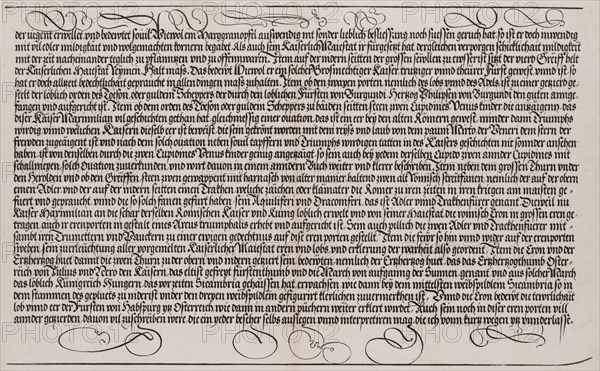 der tugent erwellet und bedewtet sovil Wiewol ein Marggranopffl auswendig mit sonder lieblich besliessung noch suessen geruch hat so ist er doch inwendig
mit vil edler mildigkait und wolgemachten kornern begabt Als auch sein Kaiserlich Maiestat ir fürgesetzt hat dergleichen verporgen schicklichait mildigkeit
mit der zeit nacheinander teglich zu pflantzen und zu offennwaren. Item auf der indern seitten der grossen sewllen zu ewsserst sitzt der vierd Greiff helt
der Kaiserlichen Maiestat Reymen. Halt mass. Das bedewt Wiewol er ein solicher Grosmechtiger Kaiser trutziger unnd theurer Fürst gewest unnd ist so
hat er doch allzeit bescheidelich gepraucht in allen dingen mass zuhalten. Item ob den zwayen porten nemlich des lobs und des Adels ist zu einer gezierd ge-
stelt der loblich orden des Toeson oder gulden Scheppers der durch den loblichen Fürsten von Burgundi Hertzog Philipsen von Burgundi den guten annge-
fangen und aufgericht ist. Item ob dem orden des Toeson oder guldem Scheppers zu baiden seitten steen zwen Cupidines Venus kinder die antzaigent das
diser Kaiser Maximilian vil geschichten gethan hat gleichmessig einer ouation das ist ein eer bey den alten Römern gewest minder dann Triumphs
wirdig unnd welichen Kaisern dieselb eer ist beweist die sein gekrönt worden mit dem reyss und laub von dem paum Mirto der Veneri dem stern der
frewden zugeaigent ist und nach dem solch ouation neben sovil tapffern und Triumphs wirdigen tatten in des Kaisers geschichten nit sonnder ansehen
haben ist von denselben durch die zwen Cupidines Venus kinder genug angezaigt so sein auch bey yedem derselben Cupido zwen annder Cupidines mit
schallmeyen solch Ouation zuuerkunden und wirt dauon in einem anndern Buch weiter und klerer beschriben Item neben dem grossen Thurn under
den Herolden und ob den Greiffen steen zwen gewappent im harnasch von alter mannir haltend zwen alt Römisch streitfanen nemlich der auf der oberen
einer Adler und der auf der indern seitten einen Trakhen weliche zaichen oder klainater die Romer zu iren zeitten in iren kriegen am maisten ge-
fuert und gepraucht unnd die so solch fanen gefurt haben sein Aquiliferi und Draconiferi das ist Adler unnd Trakhenfürer genant Dieweil nu
Kaiser Maximilian an die schar derselben Römischen Kaiser und Kunig loblich erwelt und von seiner Maiestat die römisch Cron in grossen eren ge-
tragen auch ir eernporten in gestalt eines Arcus triumphalis erhebt und aufgericht ist. Sein auch pillich die zwen Adler und Trakhenfuerer mit-
sambt iren Trumettern und Pauckern zu ewigen gedechtnus auf dise eren porten gestelt. Item die seyl so hin unnd wider auf der erenporten
sweben sein zuerleichtung aller vorgemelten Kaiserlicher Maiestat eren und lobs und erkerung der warheit also geordent. Item die Cron und der
Ertzhertzog huet damit die zwen Thurn zu der obern und indern geziert sein bedewten nemlich der Ertzhertzog huet das das Ertzhertzogthumb Oster-
reich von Julius und Nero den Kaisern das eltist gefreyt fürstenthumb und die March von aufgang der Sunnen genant und aus solcher March
das löblich Königreich Hungern das vor zeiten Sicambria gehaissen hat erwachsen wie dann bey dem mittelsten weibspildlein Sicambria so in
dem stammen des gepluets zu underist under den dreyen weibspildlein gefigurirt clerlichen zuuermerkhen ist. Unnd die Cron bedewt die eerwirdichait
lob unnd eer der Fürsten von Habspurg und Osterreich wie dann in andern püchern weiter erklert wirdet. Auch sein noch in diser eren porten vill
annder gezierden dauon vil zuschreiben were die ein yeder bescher selbs auslegen unnd interpretiren mag die ich umb kurtz wegen yetz underlasst.